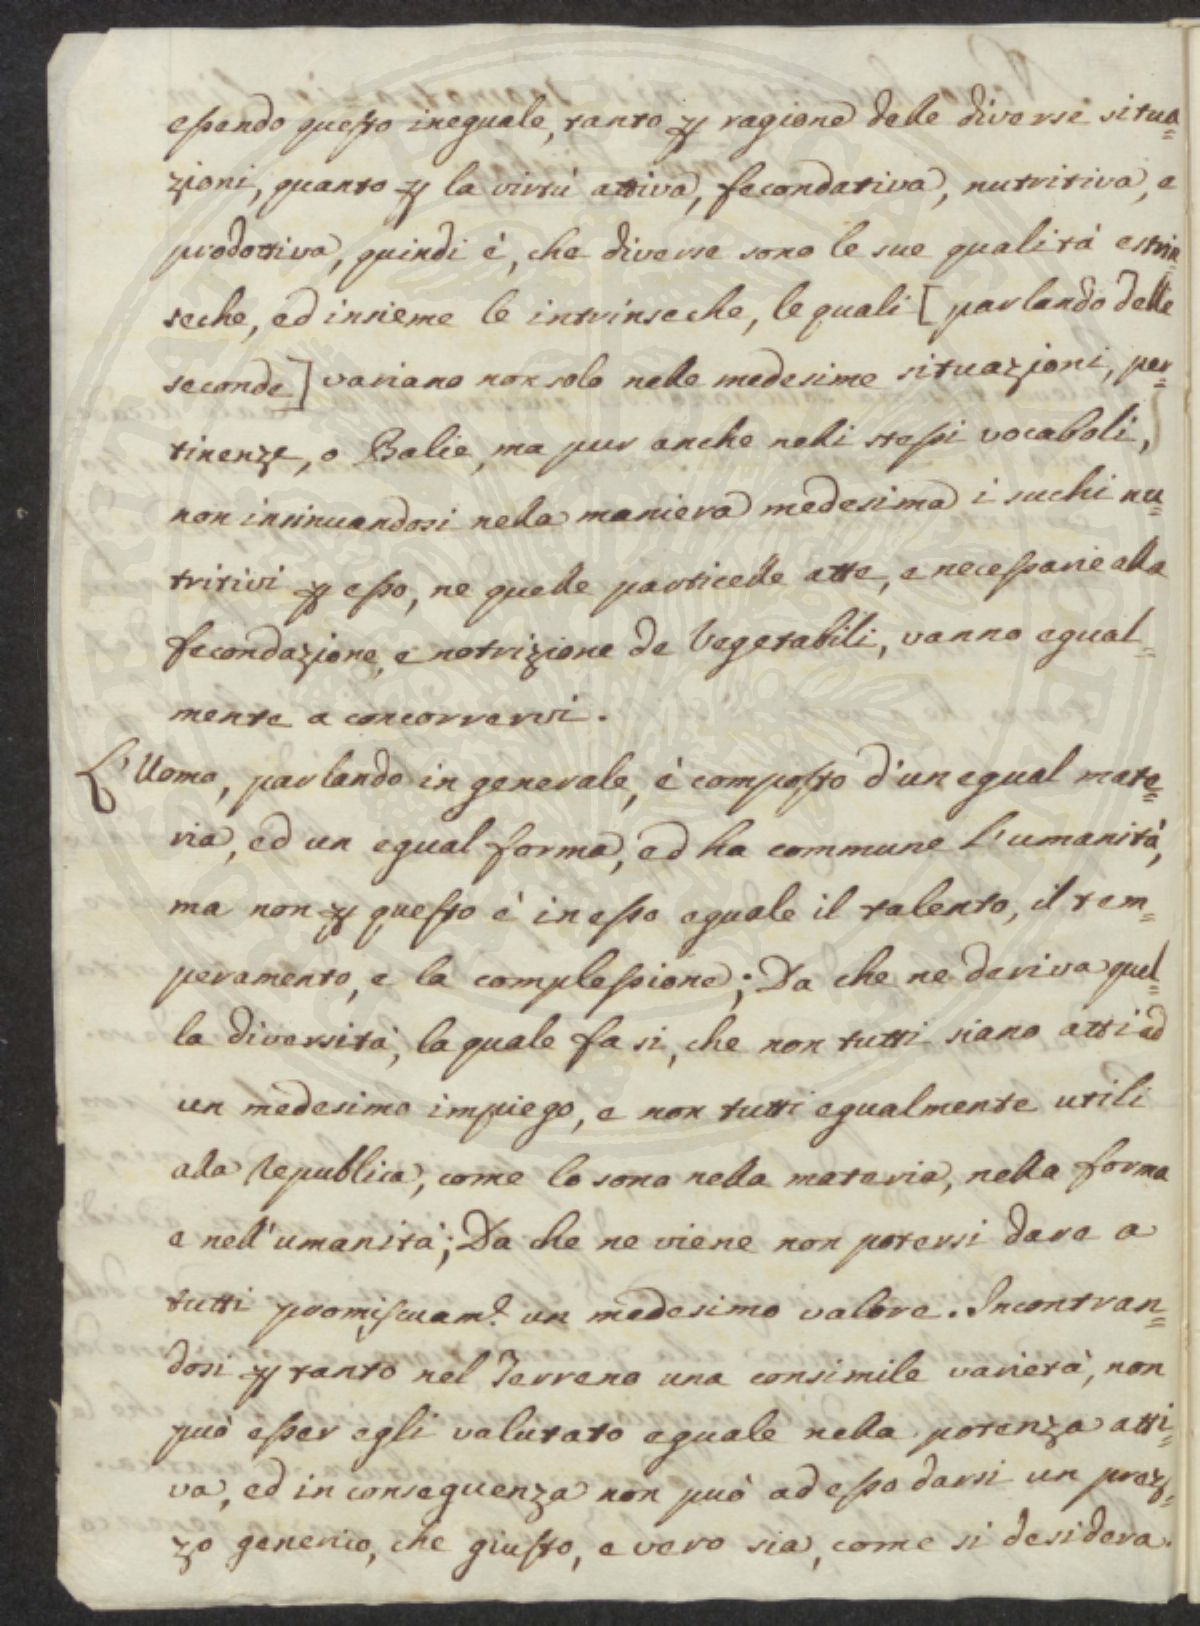 essendo questo ineguale, tanto p ragione delle diverse situa=
zioni, quanto p la virtù attiva, fecondativa, nutritiva, e
prodottiva, quindi è, che diverse sono le sue qualità estrin=
seche, ed insieme le intrinseche, le quali [parlando delle
seconde] variano non solo nelle medesime situazioni, per=
tinenze, o Balie, ma pur anche nelli stessi vocaboli,
non insinuandosi nella maniera medesima i suchi nu=
tritivi p esso, ne quelle particelle atte, e necessarie alla
fecondazione, e notrizione de Vegetabili, vanno egual=
mente a concorrervi.
L'Uomo, parlando in generale, è composto d'un egual mate=
ria, ed un egual forma, ed ha commune l'umanità,
ma non p questo è in esso eguale il talento, il tem=
peramento, e la complessione; Da che ne deriva quel=
la diversità, la quale fa si, che non tutti siano atti ad
un medesimo impiego, e non tutti egualmente utili
alla Republica, come lo sono nella materia, nella forma
e nell'umanità; Da che ne viene non potersi dare a
tutti promiscuam.e un medesimo valore. Incontran=
dosi p tanto nel Terreno una consimile varietà, non
può esser egli valutato eguale nella potenza atti=
va, ed in conseguenza non può ad esso darsi un prez=
zo generico, che giusto, e vero sia, come si desidera.